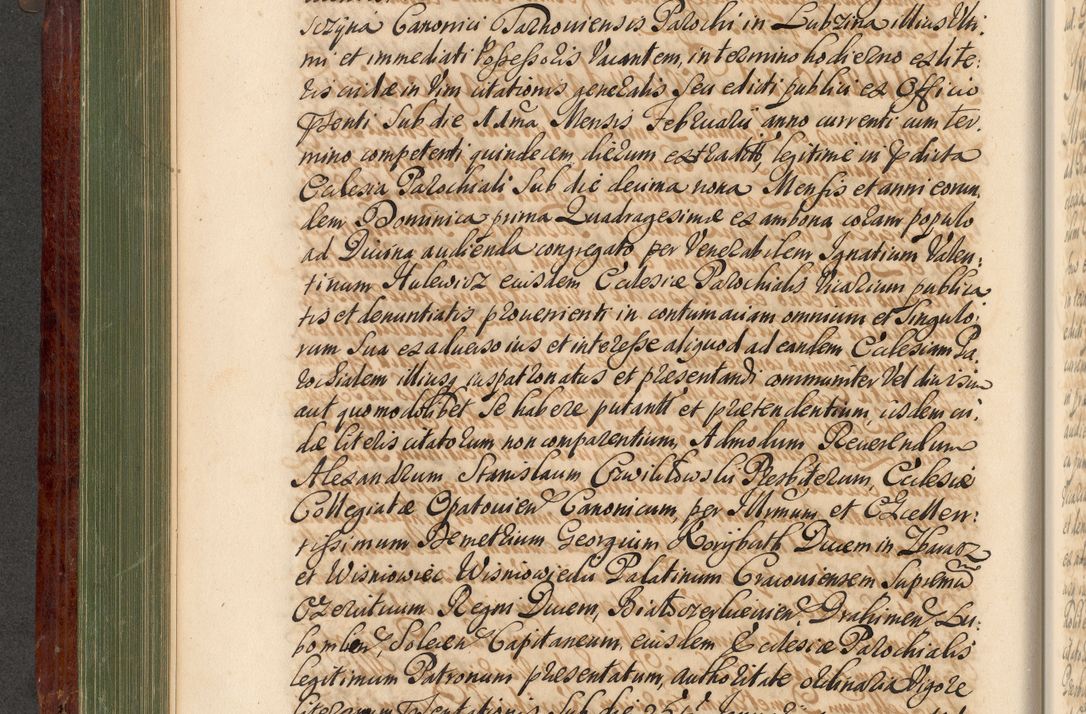 sczÿna Canonici Tarnoviensis Parochi in Lubzina illius Ulti:
mi et immediati Possessoris Vacantem, in termino hodierno ex lite:
ris cridæ in Vim citationis generalis seu edicti publici ex Officio
pñenti Sub die Mensis Februarii anno currenti cum ter:
mino competenti quindecem dierum extraditt, legitime in pdicta
Ecclesia Parochiali Sub die decima nona Mensis et anni eorun
dem Dominica prima Quadragesimæ ex ambona coram populo
ad Divina audienda congregato per Venerabilem Ignatium Valen:
tinum Hulewicz eiusdem Ecclesiæ Parochialis Vicarium publica
tis et denuntiatis provenienti in contumaciam omnium et Singulo:
rum Sua ex adverso ius et interesse aliquod ad eandem Ecclesiam Pa:
rochialem illiusq iuspatronatus et præsentandi communiter Vel divisim
aut quomodolibet Se habere putantt et prætendentium, iisdem cri:
dæ literis citatorum non comparentium, Admodum Reverendum
Alexandrum Stanislaum Presbiterum, Ecclesiæ
Collegiatæ Opatovien Canonicum, per Illrmum et Excellen:
tissimum Demetrium Georgium Korÿbuth Ducem in Zbaraz
et Wisniowiec Wisniowiecki Palatinum Cracoviensem Supremu
Exercituum Regni Ducem, Drahimen Lu:
bomben Solecen Capitaneum, eiusdem Ecclesiæ Parochialis
legitimum Patronum præsentatum, authoritate ordinaria Vigore
literarum Præsentationis Sub die